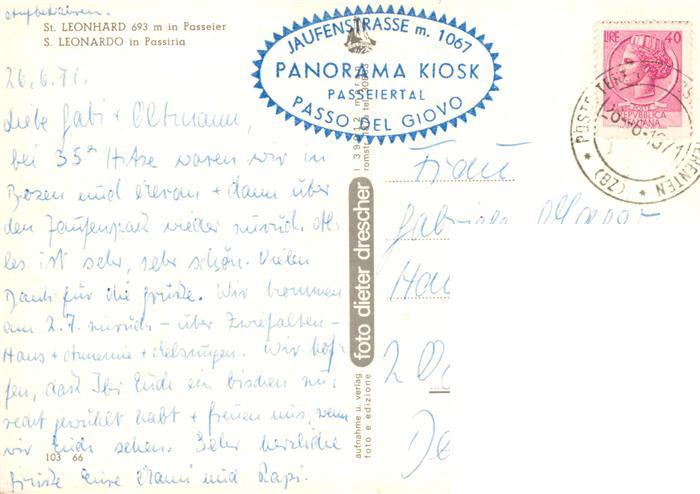 aufbewahren.
St. LEONHARD 693 m in Passeier
S. LEONARDO in Passiria
JAUFENSTRASSE m. 1067
PANORAMA KIOSK
PASSEIERTAL
PASSO DEL GIOVO
LIRE 40
POSTE
REPVBBLICA
ITALIANA
POSTE
(BZ)
26.6.71.
Liebe Gabi + Ottmann,
bei 35° Hitze waren wir in
Bozen und Meran + dann über
den Jaufenpaß wieder zurück. Al-
les ist sehr, sehr schön. Vielen
Dank für die Grüße. Wir kommen
am 2.7. zurück - über Zwiefalten -
Hans + Annemie + Melsungen. Wir hof-
fen, daß Ihr Euch ein bischen zu-
recht gewühlt habt + freuen uns, wenn
wir Euch sehen. Sehr herzliche
Grüße Eure Mami und Papi.
103 66
foto dieter drescher
aufnahme u. verlag
foto e edizione
Frau
2